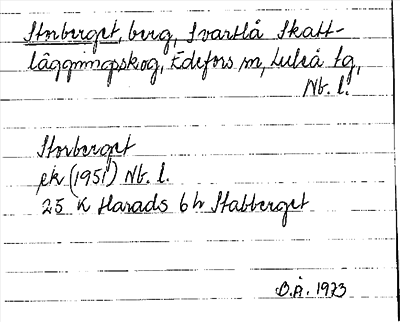 Storberget, berg, Svartlå Skatt-
läggningsskog, Edefors sn, Luleå tg,
Nb. l.
Storberget
ek (1951) Nb. l.
25 K Harads 6 h Stabberget
O.Å. 1973